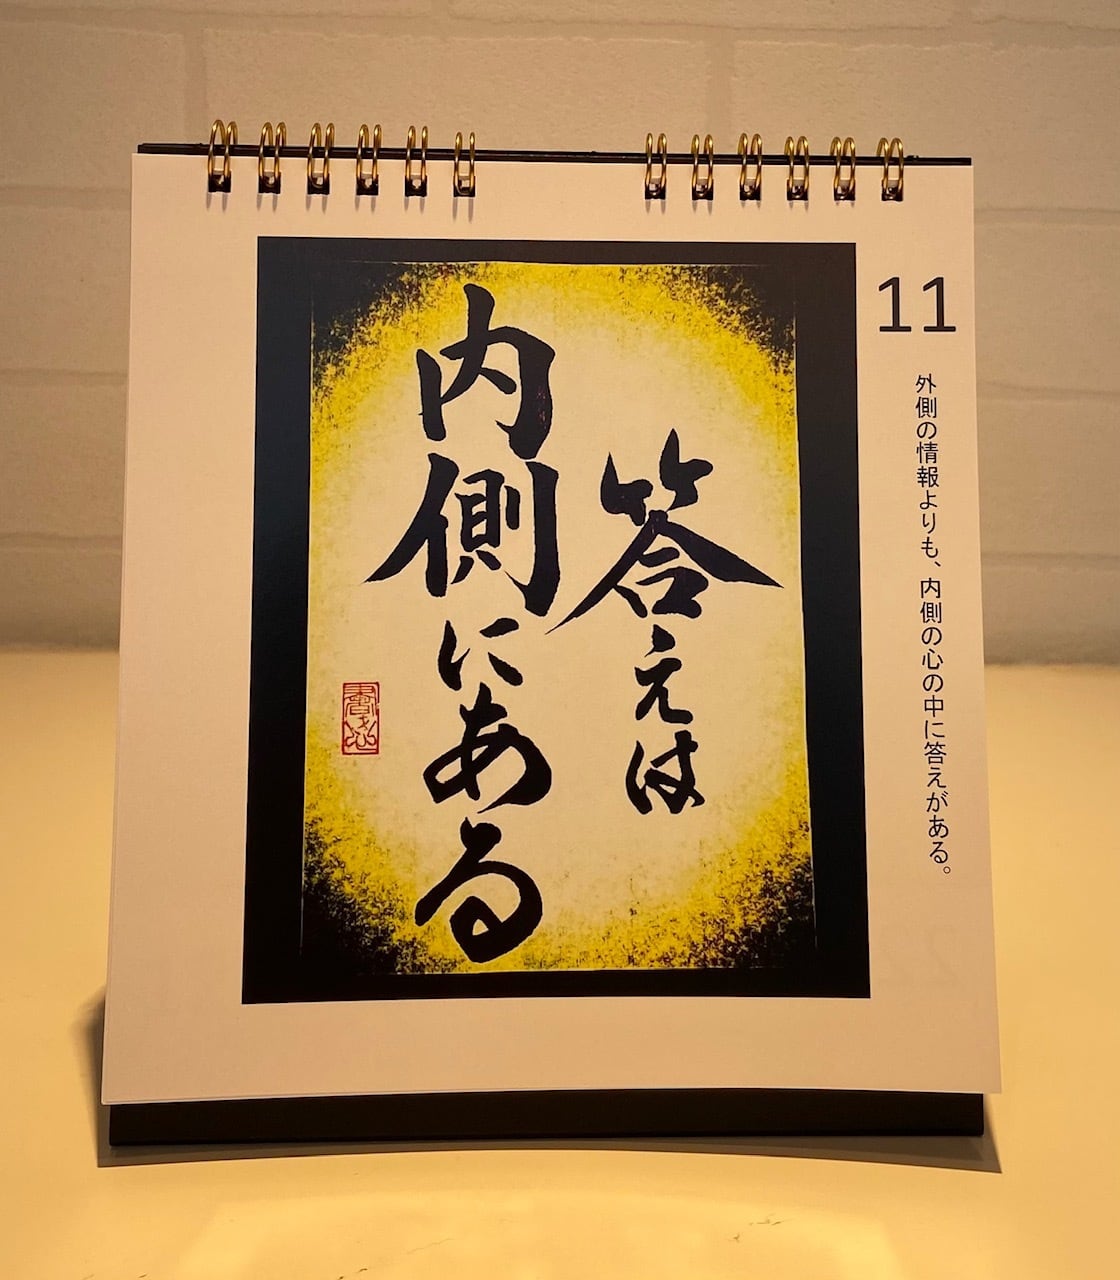 11
外側の情報よりも、内側の心の中に答えがある。
答えは
内側にある